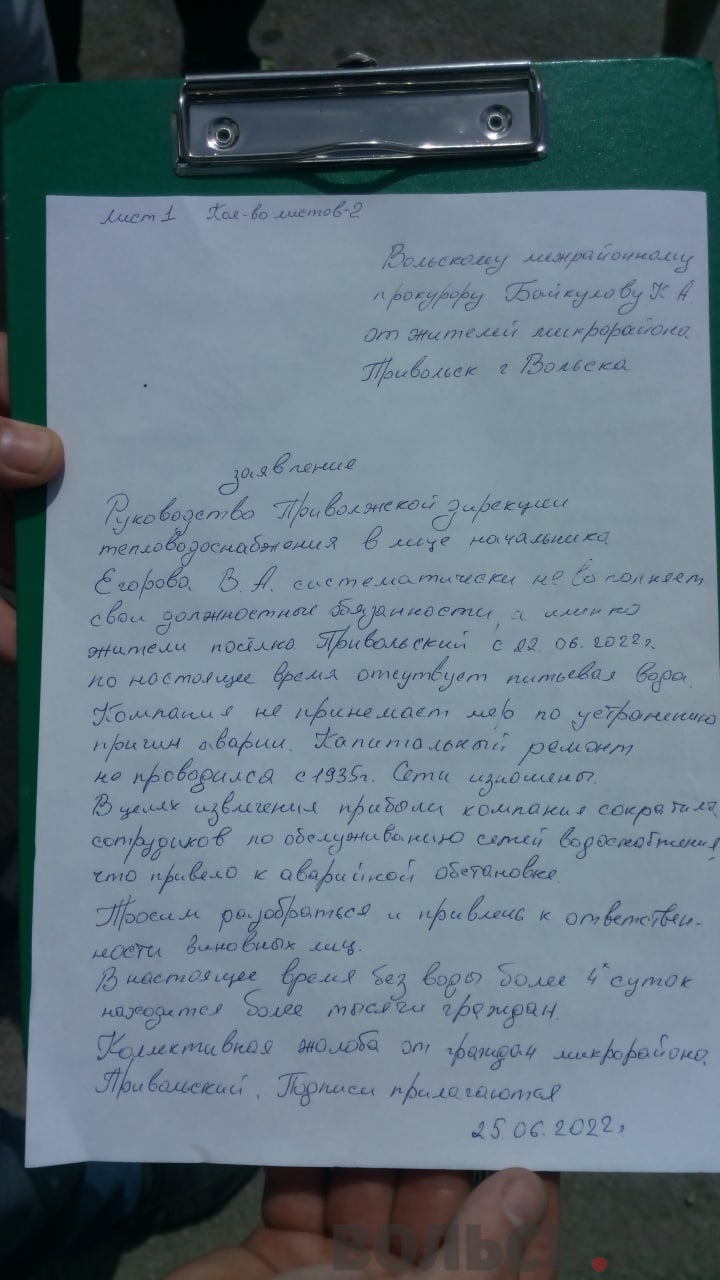 Лист 1 Кол-во листов-2
Вольскому межрайонному
прокурору Байкулову К А.
от жителей микрорайона
Привольск г Вольска
заявление
Руководство Приволжской дирекции
тепловодоснабжения в лице начальника
Егорова В. А. систематически не выполняет
свои должностные обязанности, а именно
жители посёлка Привольский с 22. 06. 2022г.
по настоящее время отсутвует питьевая вода.
Компания не принемает мер по устранению
причин аварии. Капитальный ремонт
не проводился с 1935г. Сети изношены.
В целях извлечения прибыли компания сократила
сотрудиков по обслуживанию сетей водоснабжения,
что привело к аварийной обстановке.
Просим разобраться и привлечь к ответствен-
ности виновных лиц.
В настоящее время без воды более 4х суток
находится более тысячи граждан.
Коллективная жалоба от граждан микрорайона
Привольский. Подписи прилагаются
25.06.2022г
ВОЛЬСК.